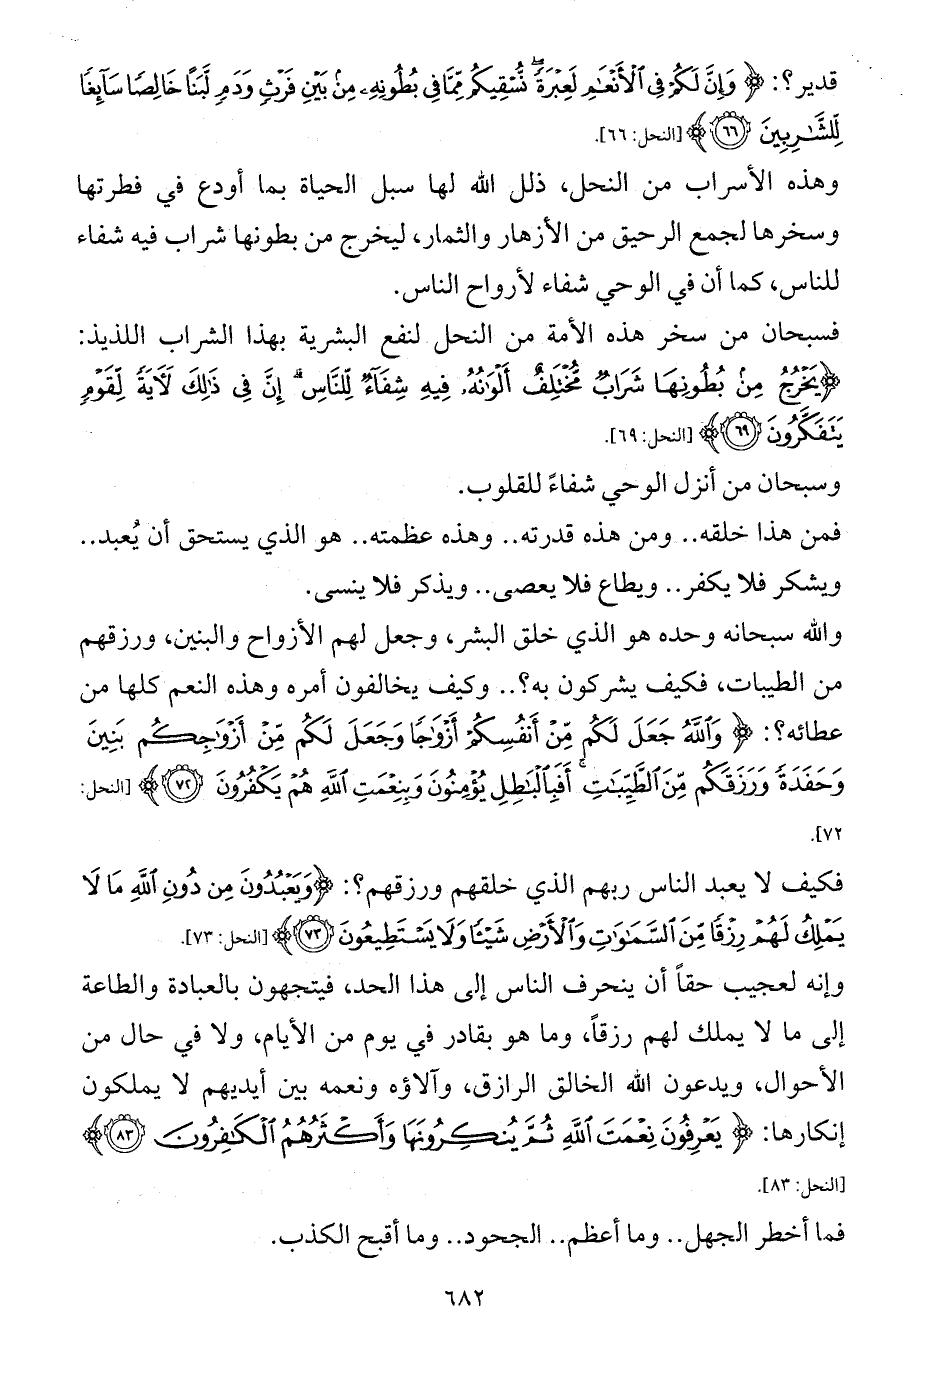 قدير؟: ﴿ وَإِنَّ لَكُمْ فِي ٱلْأَنْعَٰمِ لَعِبْرَةً ۖ نُّسْقِيكُم مِّمَّا فِي بُطُونِهِۦ مِنۢ بَيْنِ فَرْثٍ وَدَمٍ لَّبَنًا خَالِصًا سَآئِغًا
لِّلشَّٰرِبِينَ ٦٦ ﴾ [النحل: ٦٦].
وهذه الأسراب من النحل، ذلل الله لها سبل الحياة بما أودع في فطرتها
وسخرها لجمع الرحيق من الأزهار والثمار، ليخرج من بطونها شراب فيه شفاء
للناس، كما أن في الوحي شفاء لأرواح الناس.
فسبحان من سخر هذه الأمة من النحل لنفع البشرية بهذا الشراب اللذيذ:
﴿يَخْرُجُ مِنۢ بُطُونِهَا شَرَابٌ مُّخْتَلِفٌ أَلْوَٰنُهُۥ فِيهِ شِفَآءٌ لِّلنَّاسِ ۗ إِنَّ فِي ذَٰلِكَ لَآيَةً لِّقَوْمٍ
يَتَفَكَّرُونَ ٦٩ ﴾ [النحل: ٦٩].
وسبحان من أنزل الوحي شفاءً للقلوب.
فمن هذا خلقه.. ومن هذه قدرته.. وهذه عظمته.. هو الذي يستحق أن يُعبد..
ويشكر فلا يكفر.. ويطاع فلا يعصى.. ويذكر فلا ينسى.
والله سبحانه وحده هو الذي خلق البشر، وجعل لهم الأزواج والبنين، ورزقهم
من الطيبات، فكيف يشركون به؟.. وكيف يخالفون أمره وهذه النعم كلها من
عطائه؟: ﴿ وَٱللَّهُ جَعَلَ لَكُم مِّنْ أَنفُسِكُمْ أَزْوَٰجًا وَجَعَلَ لَكُم مِّنْ أَزْوَٰجِكُم بَنِينَ
وَحَفَدَةً وَرَزَقَكُم مِّنَ ٱلطَّيِّبَٰتِ ۚ أَفَبِٱلْبَٰطِلِ يُؤْمِنُونَ وَبِنِعْمَتِ ٱللَّهِ هُمْ يَكْفُرُونَ ٧٢ ﴾ [النحل:
٧٢].
فكيف لا يعبد الناس ربهم الذي خلقهم ورزقهم؟: ﴿وَيَعْبُدُونَ مِن دُونِ ٱللَّهِ مَا لَا
يَمْلِكُ لَهُمْ رِزْقًا مِّنَ ٱلسَّمَٰوَٰتِ وَٱلْأَرْضِ شَيْـًٔا وَلَا يَسْتَطِيعُونَ ٧٣ ﴾ [النحل: ٧٣].
وإنه لعجيب حقاً أن ينحرف الناس إلى هذا الحد، فيتجهون بالعبادة والطاعة
إلى ما لا يملك لهم رزقاً، وما هو بقادر في يوم من الأيام، ولا في حال من
الأحوال، ويدعون الله الخالق الرازق، وآلاؤه ونعمه بين أيديهم لا يملكون
إنكارها: ﴿ يَعْرِفُونَ نِعْمَتَ ٱللَّهِ ثُمَّ يُنكِرُونَهَا وَأَكْثَرُهُمُ ٱلْكَٰفِرُونَ ٨٣ ﴾
[النحل: ٨٣].
فما أخطر الجهل.. وما أعظم.. الجحود.. وما أقبح الكذب.
٦٨٢